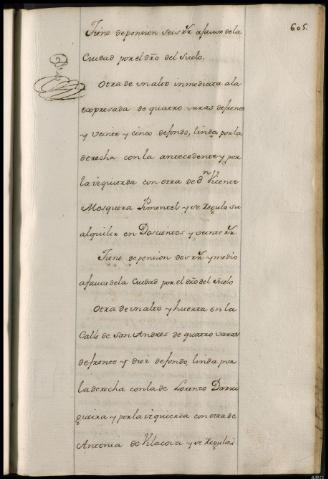 605.
Tiene de pension seis rr. a favor de la
Ciudad por el año del suelo.
Otra de un alto inmediata a la
expresada de quatro varas de frente
y veinte y cinco de fondo, linda por la
derecha con la antecedente y por
la izquierda con otra de Dn. Vicente
Mosquera Pimentel y se regula su
alquiler en Doscientos y veinte rr.
Tiene de pension dos rr. y medio
a favor de la Ciudad por el año del suelo
Otra de un alto y huerta en la
Calle de San Andres de quatro varas
de frente y diez de fondo, linda por
la derecha con la de Lorenzo
y por la izquierda con otra de
Antonia de Vilacova y se regula su